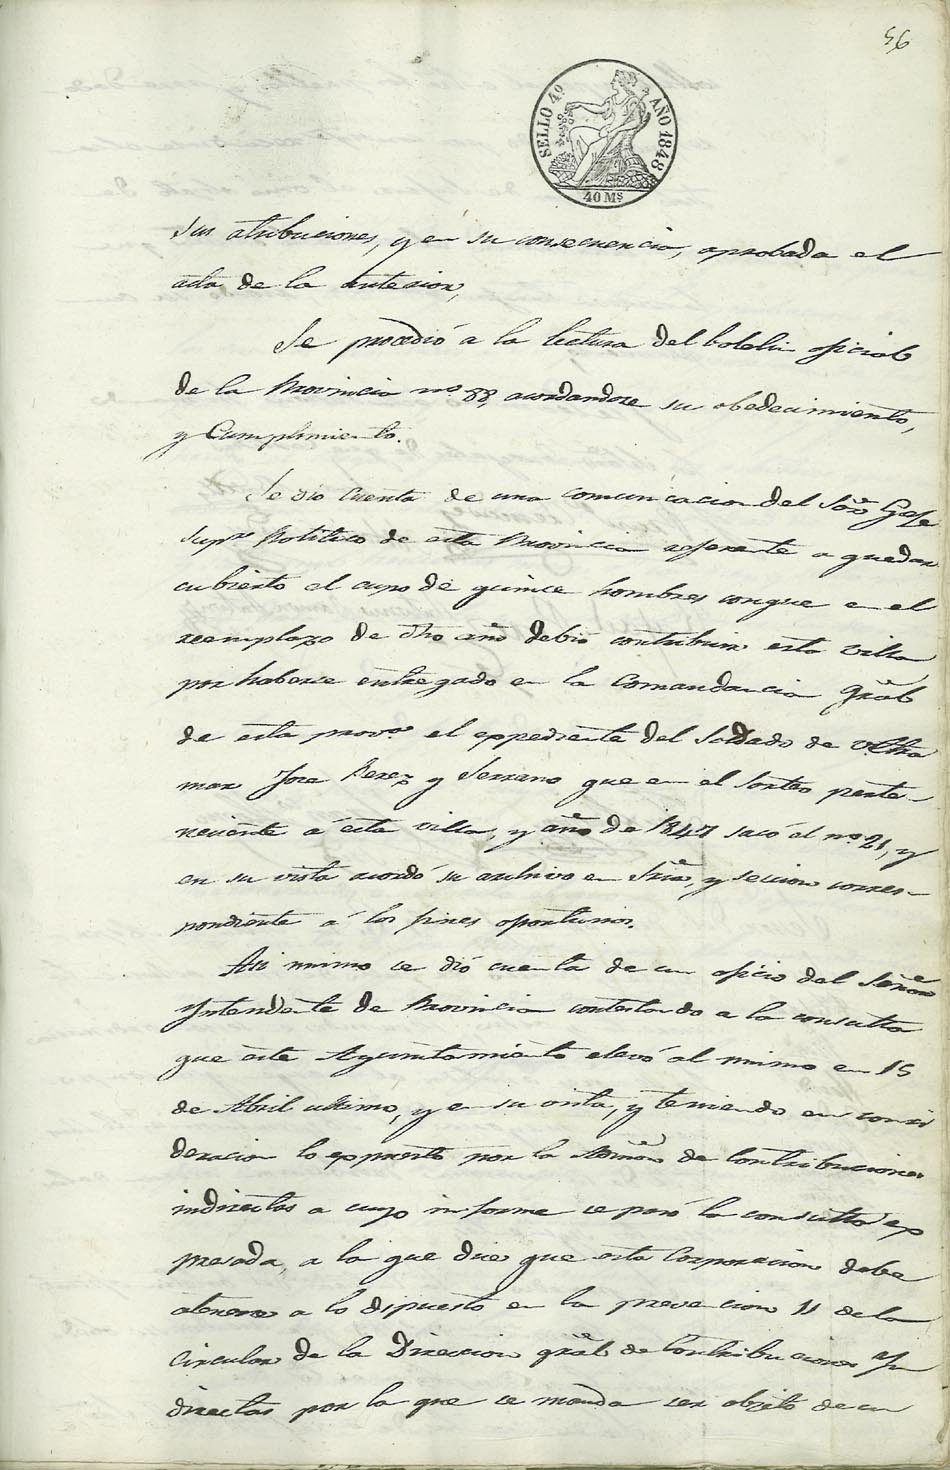 56
SELLO 4º AÑO 1848
40 Ms
sus atribuciones, y en su consecuencia, aprobada el
acta de la anterior,
Se procedió a la lectura del boletin oficial
de la Provincia nº 88, acordandose su obedecimiento,
y Cumplimiento.
Se dió cuenta de una comunicacion del Sor Gefe
Supr Politico de esta Provincia referente a quedar
cubierto el cupo de quince hombres conque en el
reemplazo de dho año debió contribuir esta villa
por haberse entregado en la Comandancia Gral
de esta provª el expediente del Soldado de Ultra
mar Jose Perez y Serrano que en el Sorteo perte-
neciente á esta villa, y año de 1847 sacó el nº 21, y
en su vista acordó su archivo en Sria, y seccion corres-
pondiente á los fines oportunos.
Asi mismo se dió cuenta de un oficio del Señor
Yntendente de Provincia contestando a la consulta
que este Ayuntamiento elevó al mismo en 15
de Abril ultimo, y en su vista, y teniendo en consi
deracion lo expuesto por la Admon de Contribuciones
indirectas a cuyo informe se pasó la consulta ex
presada, a la que dice que esta Corporacion debe
atenerse a lo dispuesto en la prevencion 11 de la
Circular de la Direccion gral de Contribuciones Yn
directas por la que se manda ser objeto de un